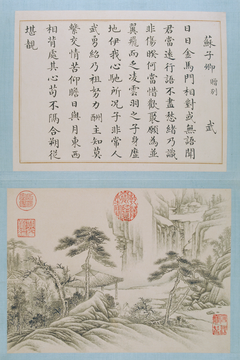 蘇子卿 贈別 武
日日金馬門相對或無語聞
君當遠行語不盡愁緒乃識
非傷暌何當惜歡聚願為並
翼飛而乏凌雲羽之子身塵
地伊我心馳所況子非常人
武勇紹乃祖努力酬主知莫
繫交情苦仰瞻日與月東西
相背處其心苟不隔合朔從
堪覩